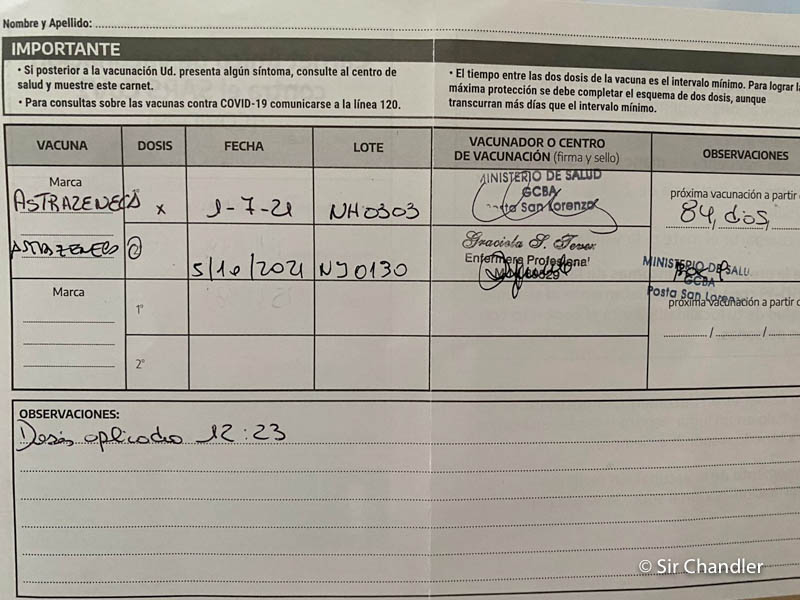 Nombre y Apellido:
IMPORTANTE
• Si posterior a la vacunación Ud. presenta algún síntoma, consulte al centro de
salud y muestre este carnet.
• Para consultas sobre las vacunas contra COVID-19 comunicarse a la línea 120.
• El tiempo entre las dos dosis de la vacuna es el intervalo mínimo. Para lograr
máxima protección se debe completar el esquema de dos dosis, aunque
transcurran más días que el intervalo mínimo.
VACUNA DOSIS FECHA LOTE VACUNADOR O CENTRO DE VACUNACIÓN (firma y sello) OBSERVACIONES
Marca
ASTRAZENECA x 1-7-21 NH0303
MINISTERIO DE SALUD
GCBA
San Lorenzo
próxima vacunación a partir
84 dias
ASTRAZENECA 2 5/10/2021 NJ0130
Graciela S.
Enfermera Profesional
MINISTERIO DE SALU
GCBA
Posta San Lorenzo
Marca
1°
2°
próxima vacunación a partir
/ /
OBSERVACIONES:
Dosis aplicada 12:23
© Sir Chandler